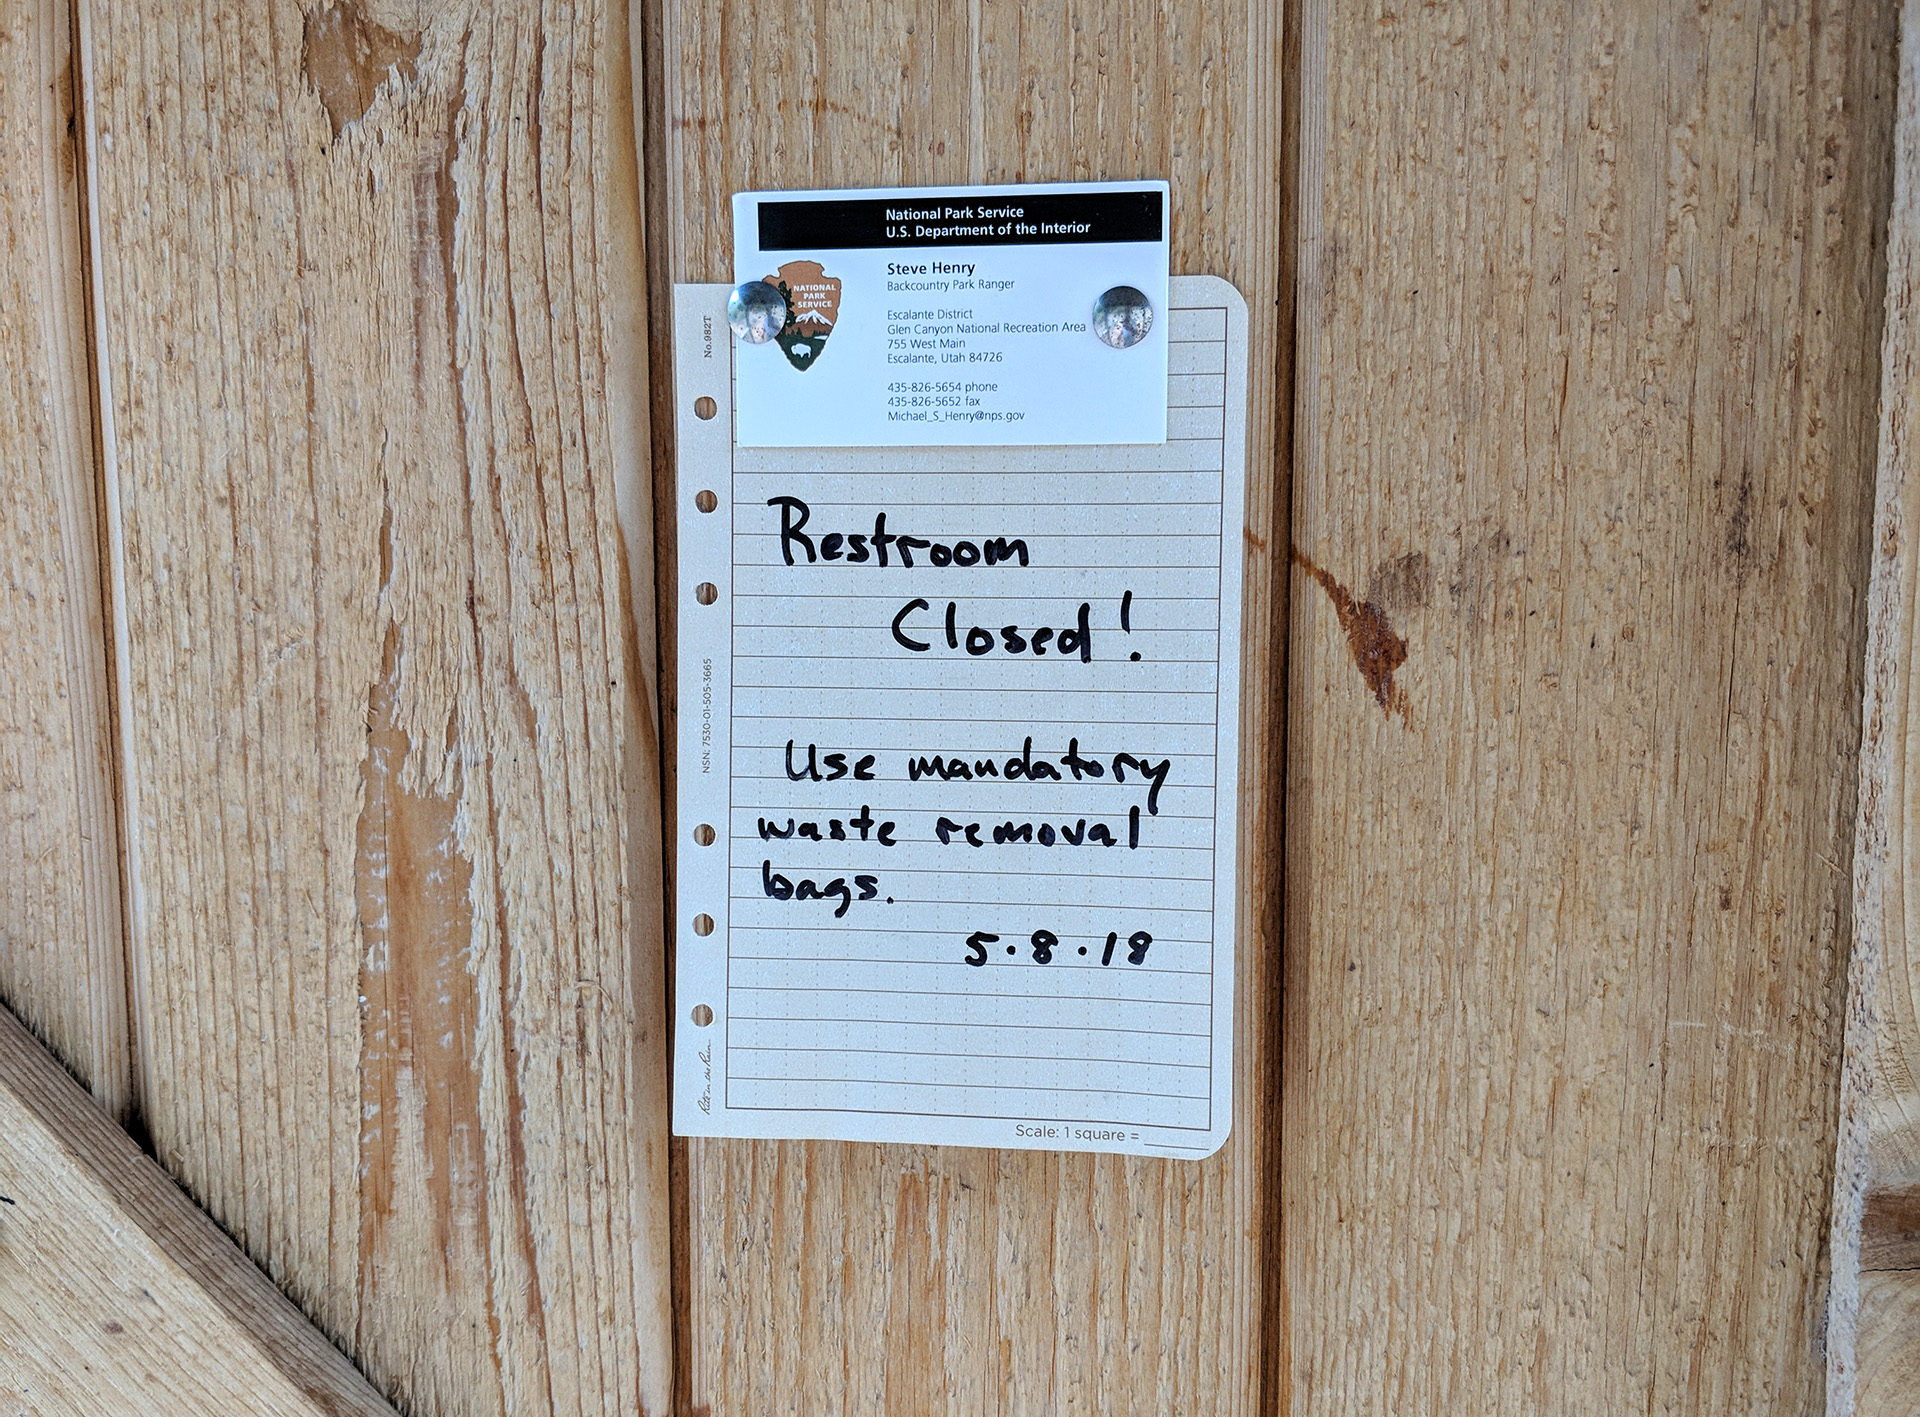 National Park Service
U.S. Department of the Interior
NATIONAL
PARK
SERVICE
Steve Henry
Backcountry Park Ranger
Escalante District
Glen Canyon National Recreation Area
755 West Main
Escalante, Utah 84726
435-826-5654 phone
435-826-5652 fax
Michael_S_Henry@nps.gov
No.982T
NSN: 7530-01-505-3665
Rite in the Rain
Restroom
Closed!
Use mandatory
waste removal
bags.
5·8·18
Scale: 1 square = ______